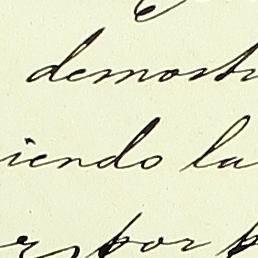 demostr
iendo la
por p